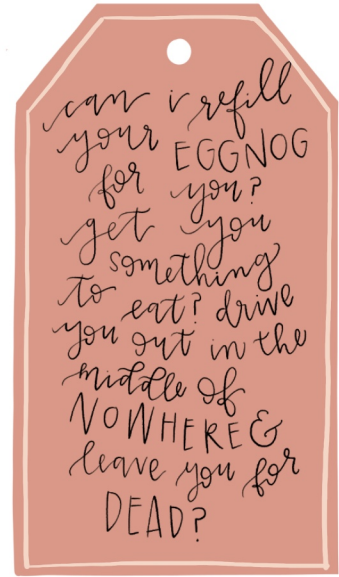 can i refill
your EGGNOG
for you?
get you
something
to eat? drive
you out in the
middle of
NOWHERE &
leave you for
DEAD?